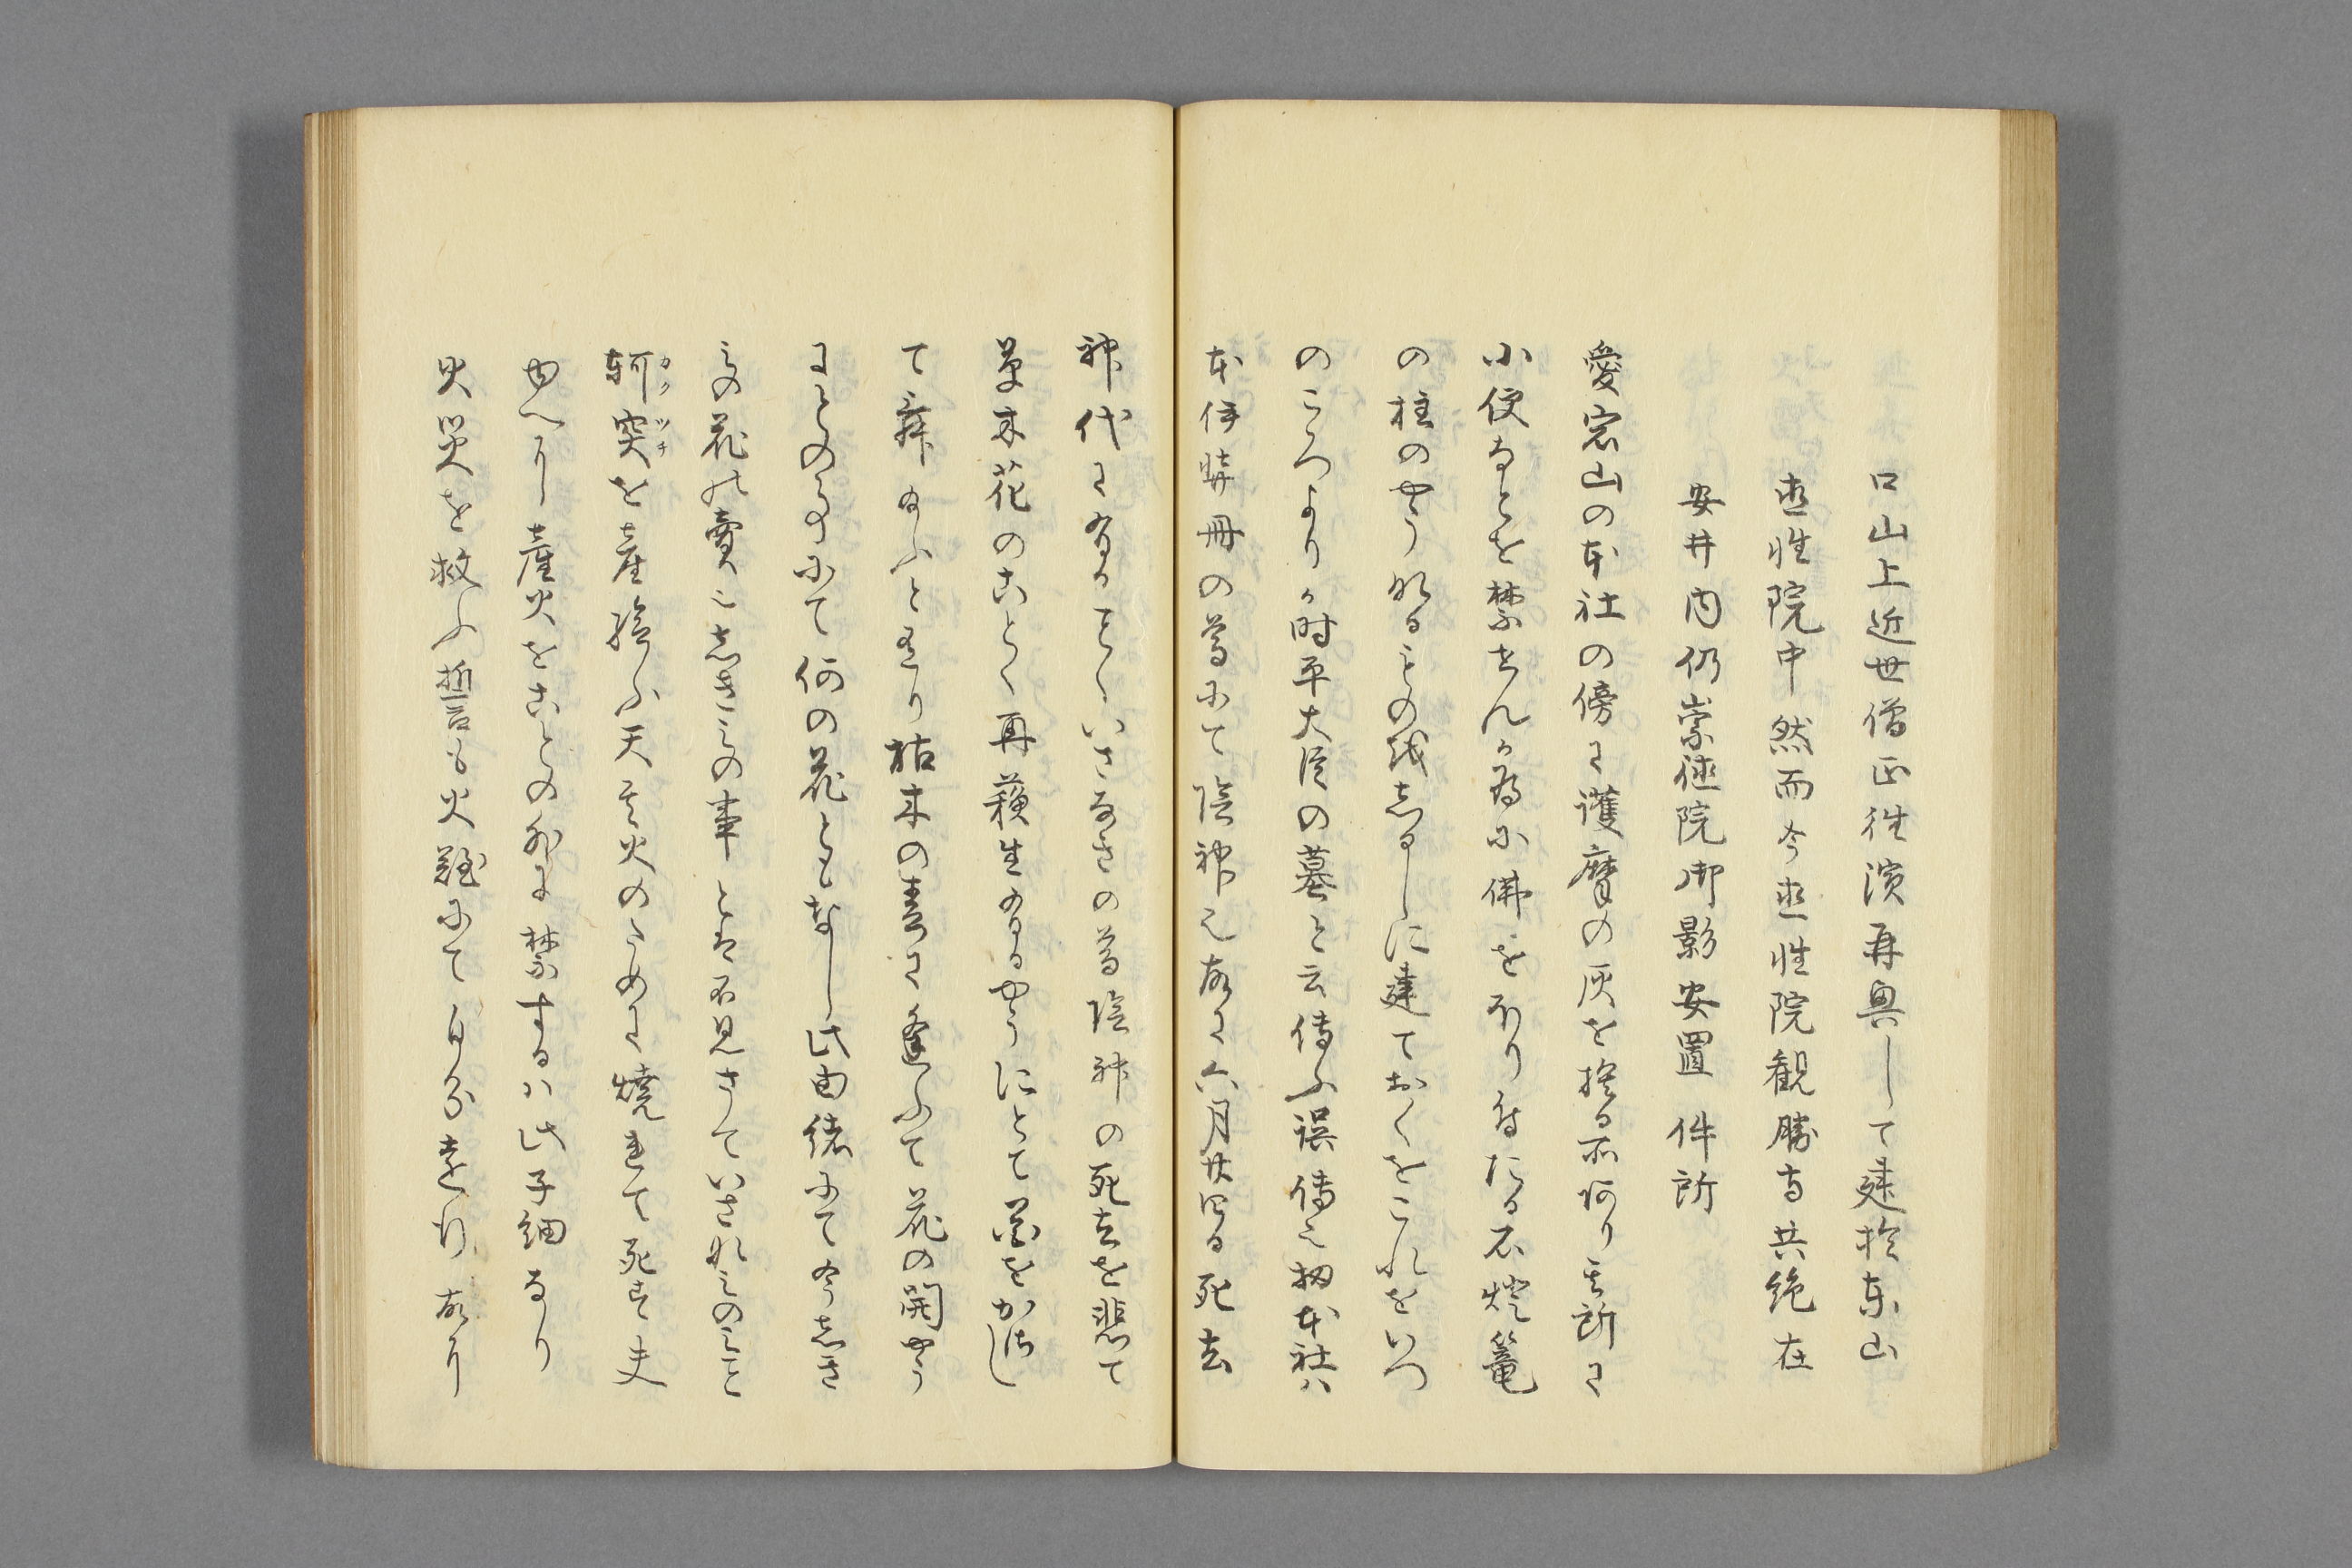 口山上近世僧正性演再興して建於東山
真性院中然而今真性院観勝寺共絶在
安井内仍崇徳院御影安置件所
愛宕山の本社の傍に護摩の灰を捨る所有り其所に
小便なとを禁せんか為に佛をほり付たる石燈篭
の柱のやうなるもの越しるしに建ておくをこれをいつ
のころよりか時平大臣の墓と云傳ふ誤傳也扨本社ハ
本伊弉冊の尊にて陰神也故に六月廿四日死去
神代に有ることくいさなきの尊陰神の死去を悲て
草木花のことく再蘓生有るやうにとて花をかさし
て舞給ふと有り枯木の春に逢ふて花の開やう
にとのことにて何の花ともなし此由緒にて今しき
みの花を賣也しきみの事とは不見さていさなみのみこと
軻突を産給ふ天其火のために焼れて死去夫
ゆへに産火をことの外に禁するハ此子細なり
火災を救ふ誓も火難にて自分遠行故に
カクツチ